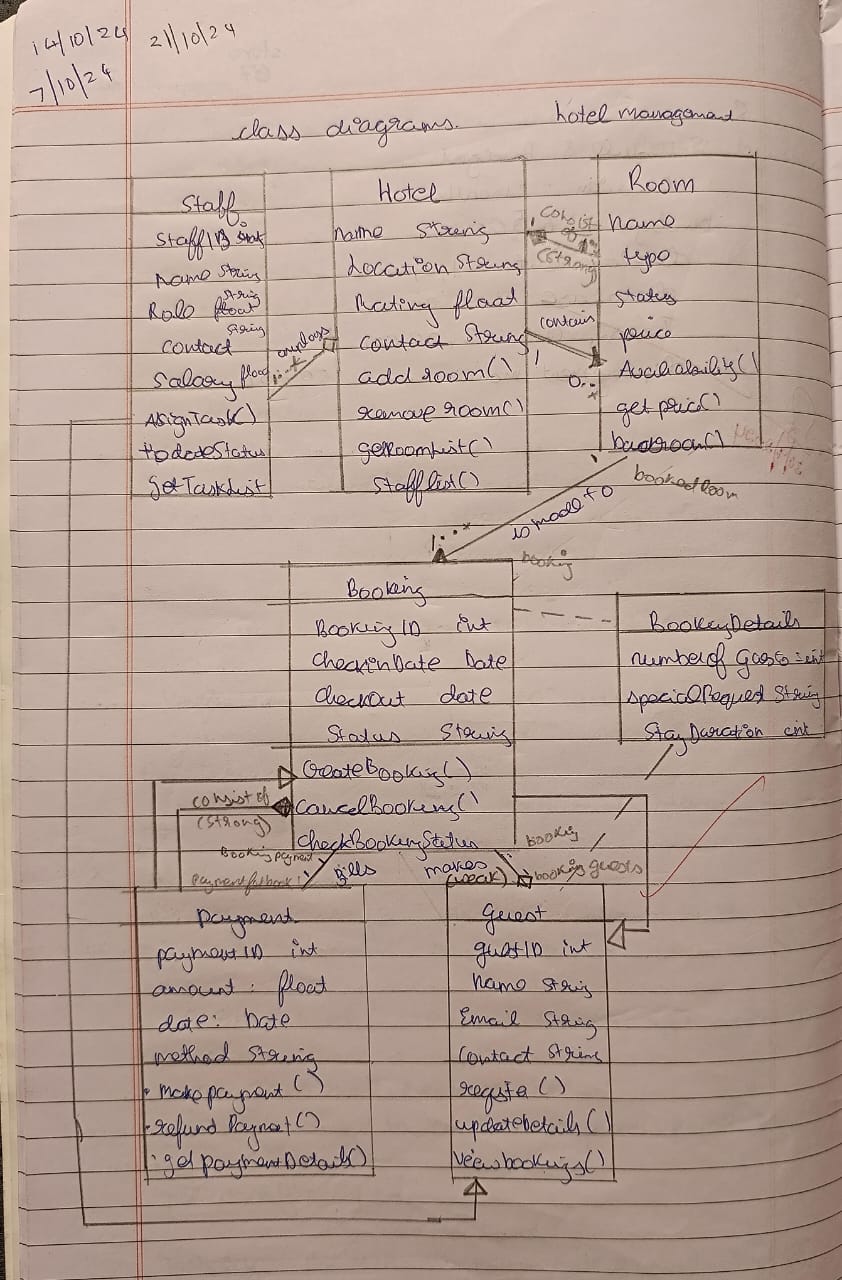 14/10/24 21/10/24
7/10/24
class diagrams. hotel management
Staff
Staff ID
Name String
Role float String
Contact String
Salary float
AssignTask()
Status
getTaskList
employs
1..*
Hotel
Name String
Location String
Rating float
Contact String
add room()
remove room()
getRoomList()
Staff list()
Consist
of
(strong)
contains
1
0..*
Room
name
type
status
price
Availability()
get price()
bookroom()
bookedRoom
is made to
1..*
booking
Booking
Booking ID int
CheckinDate Date
CheckOut date
Status String
CreateBooking()
CancelBooking()
CheckBookingStatus
BookingDetails
number of Guests int
specialRequest String
StayDuration int
consist of
(strong)
Booking payment
bills
makes
(weak)
booking
booking guests
Payment
paymentID int
amount : float
date : Date
method String
make payment()
refund Payment()
get paymentDetails()
Guest
guestID int
Name String
Email String
Contact String
register()
updateDetails()
viewbookings()